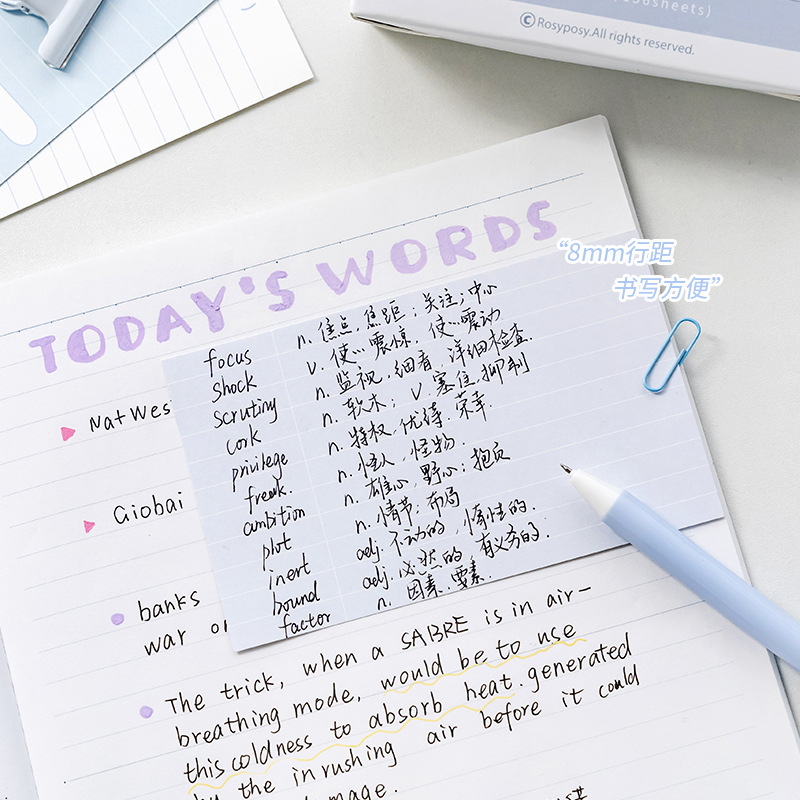 156sheets)
©Rosyposy.All rights reserved.
TODAY'S WORDS
“8mm行距
书写方便”
focus n. 焦点,焦距;关注;中心
shock v. 使…震惊,使…震动
scrutiny n. 监视,细看,详细检查.
cork n. 软木; v. 塞住,抑制
privilege n. 特权,优待,荣幸
freak. n. 怪人,怪物.
ambition n. 雄心,野心;抱负
plot n. 情节;布局
inert adj. 不动的,惰性的.
bound adj. 必然的,有义务的.
factor n. 因素.要素.
NatWes
Giobai
banks
war or
The trick, when a SABRE is in air-
breathing mode, would be to use
this coldness to absorb heat.generated
by the inrushing air before it could
mage.